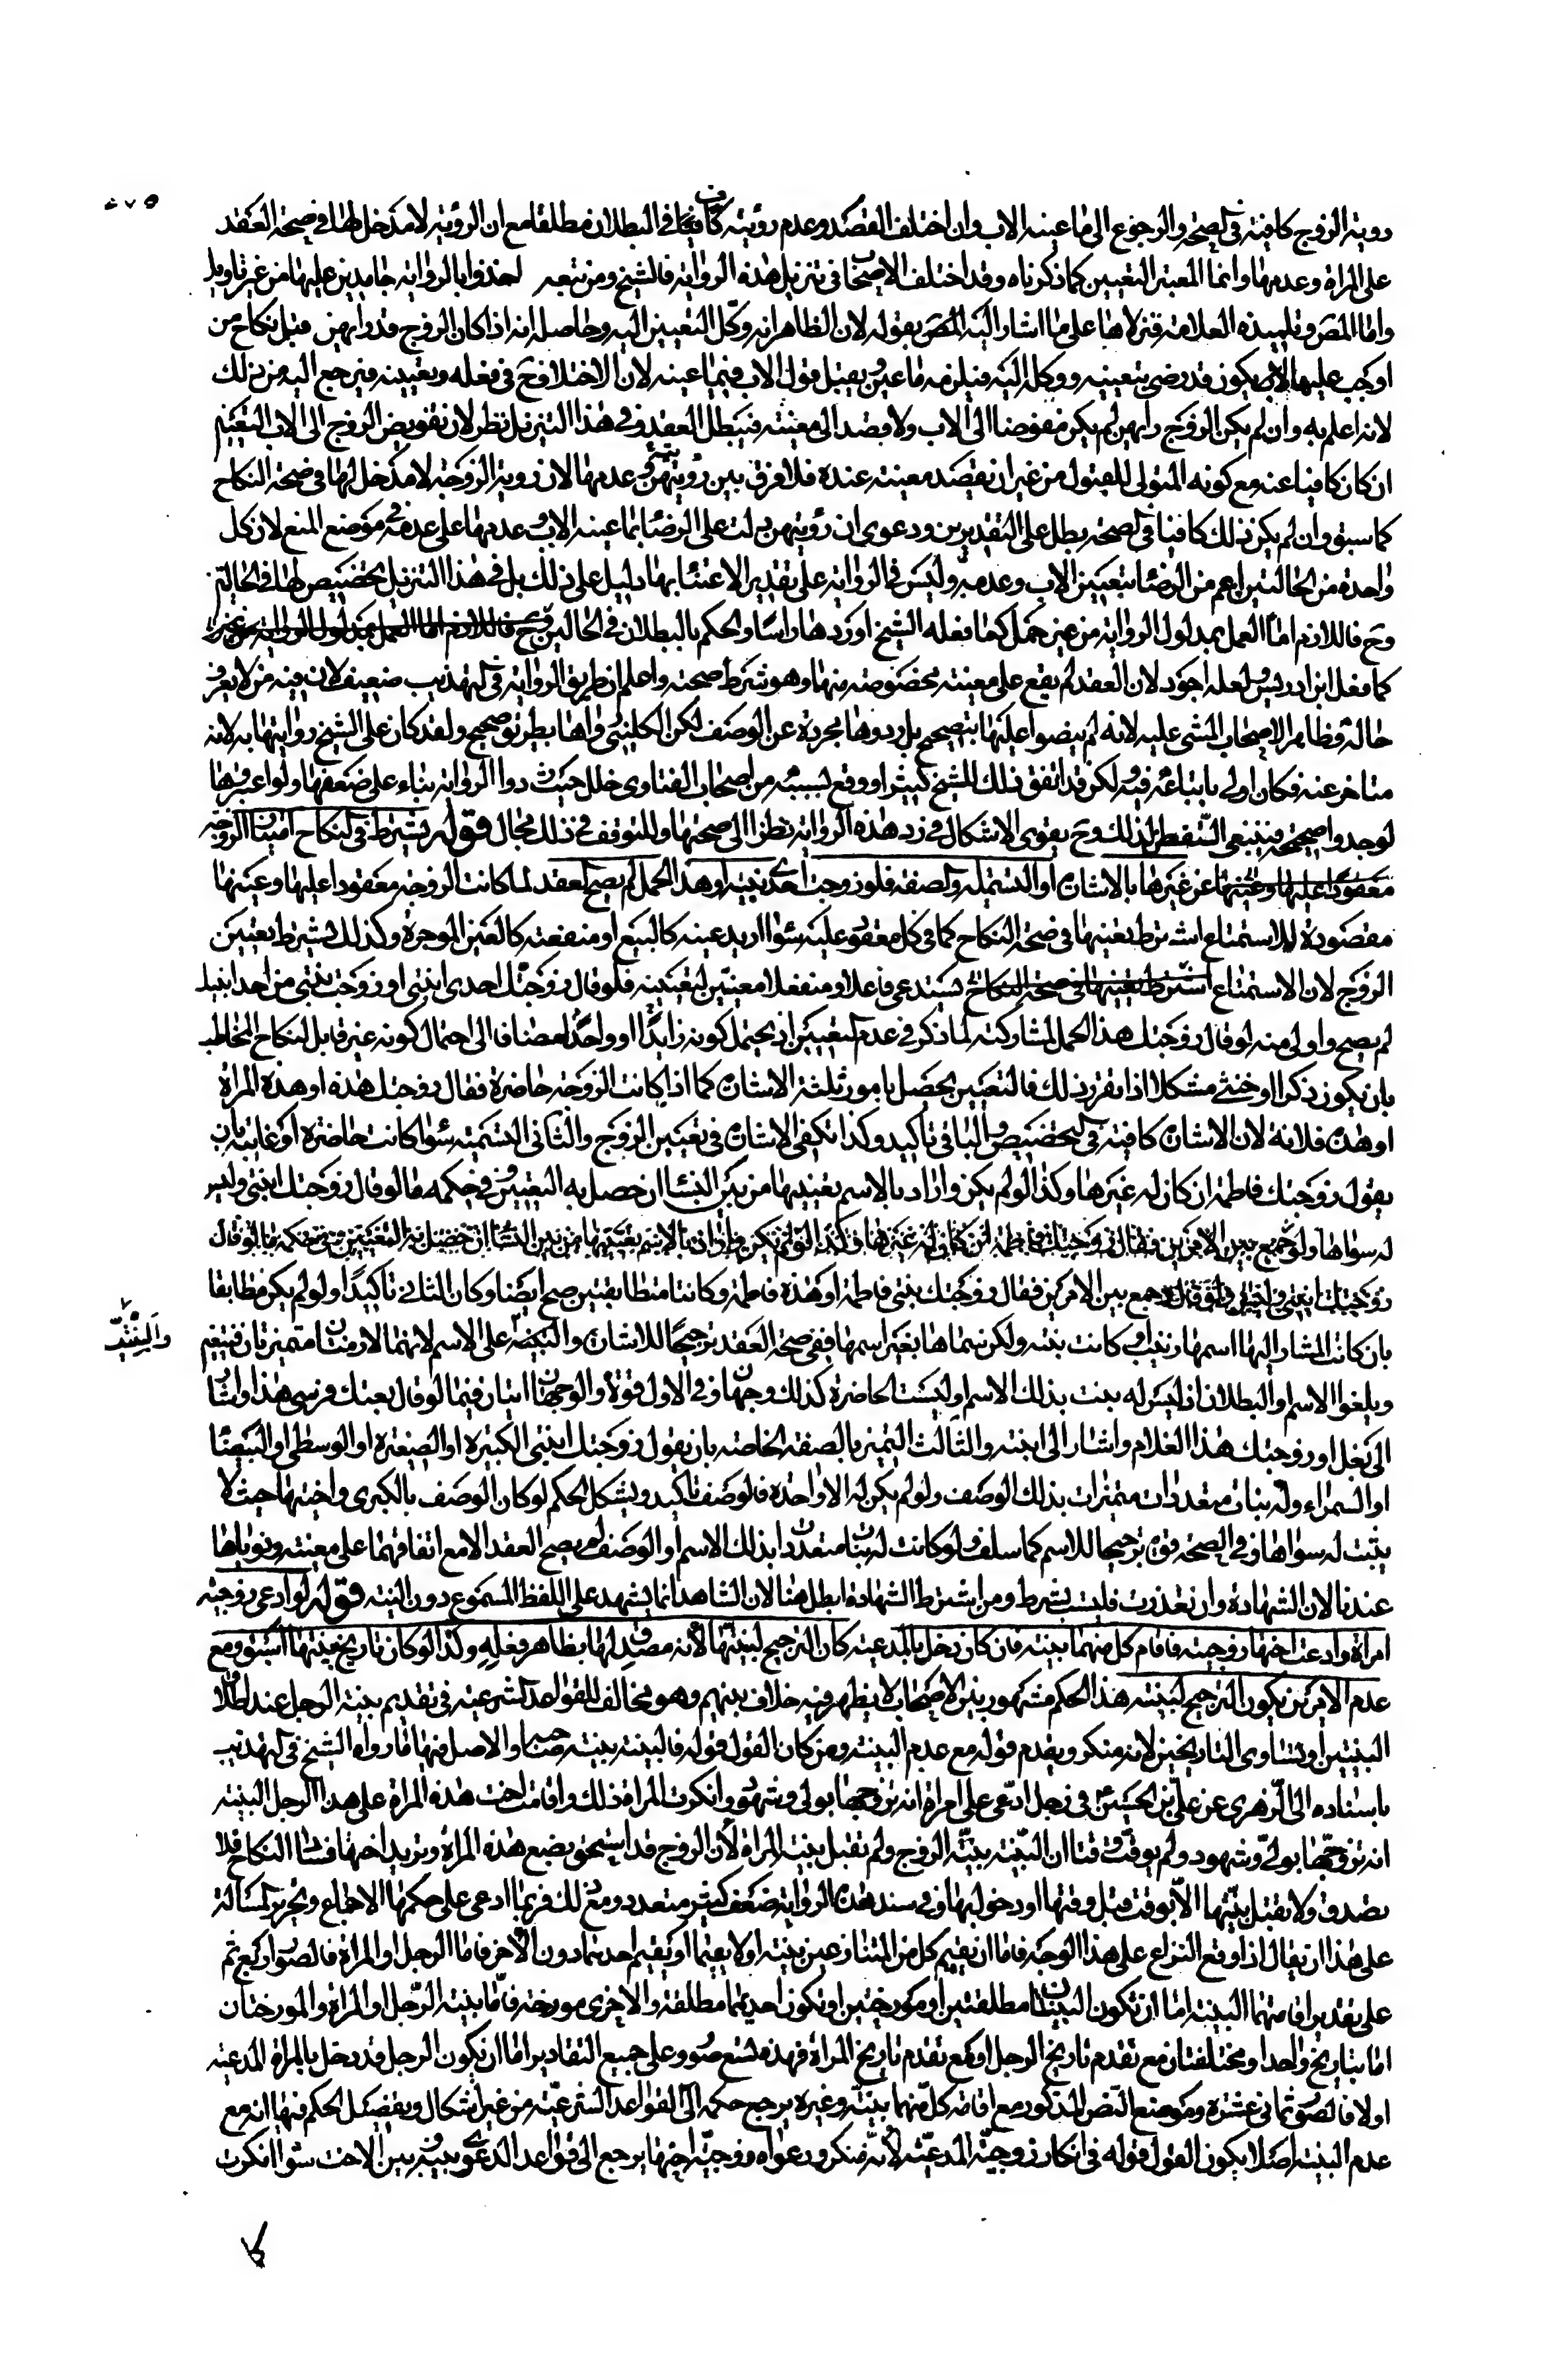 روية الزوج كافية في الصحة والرجوع الى ما عينه الاب وان اختلف القصد وعدم رؤيته كافيا في البطلان مطلقا مع ان الرؤية لا مدخل لها في صحة العقد
على المراة وعدمها وانما المعتبر التعيين كما ذكرناه وقد اختلف الاصحاب في تنزيل هذه الرواية فالشيخ ومن تبعه اخذوا بالرواية جامدين عليها من غير تاويل
واما المصر وتلميذه العلامة فنزلاها على ما اشار اليه المصر بقوله لان الظاهر انه وكل التعيين اليه وحاصله انه اذا كان الزوج قد راهن قبل نكاح من
اوجب عليها الاب يكون قد رضي بتعيينه ووكله اليه فيلزمه ما عين ويقبل قول الاب فيما عينه لان الاختلاف ح في فعله وتعيينه فيرجع اليه في ذلك
لانه اعلم به وان لم يكن الزوج راهن لم يكن مفوضا الى الاب ولا قصد الى معينة فيبطل العقد وفي هذا التنزيل نظر لان تفويض الزوج الى الاب التعيين
ان كان كافيا عنه مع كونه المتولي للقبول من غير ان يقصد معينة عنده فلا فرق بين رؤيتهن وعدمها لان روية الزوجة لا مدخل لها في صحة النكاح
كما سبق وان لم يكن ذلك كافيا في الصحة بطل على التقديرين ودعوى ان رؤيتهن دلت على الرضا بما عينه الاب وعدمها على عدمه في موضع المنع لان كل
واحدة من الحالتين اعم من الرضا بتعيين الاب وعدمه وليس في الرواية على تقدير الاعتناء بها دليل على ذلك بل في هذا التنزيل تخصيص لها في الحالتين
وح فاللازم اما العمل بمدلول الرواية من غير حمل كما فعله الشيخ او ردها راسا والحكم بالبطلان في الحالين
كما فعل ابن ادريس ولعله اجود لان العقد لم يقع على معينة مخصوصة منهما وهو شرط صحته واعلم ان طريق الرواية في التهذيب ضعيف لان فيه من لا يعرف
حاله فظاهر الاصحاب المشي عليه لانه لم ينصوا عليها بتصحيح بل ردوها مجردة عن الوصف لكن الكليني رواها بطريق صحيح ولقد كان على الشيخ روايتها به لانه
متاخر عنه فكان اولى باتباعه فيه ولكن قد اتفق ذلك للشيخ كثيرا ووقع بسببه من اصحاب الفتاوى خلل حيث ردوا الرواية بناء على ضعفها ولو اعتبروها
لوجدوها صحيحة فينبغي التفطن لذلك وح يقوى الاشكال في رد هذه الرواية نظرا الى صحتها وللتوقف في ذلك مجال قوله يشترط في النكاح امتياز الزوجة
عن غيرها بالاشارة او التسمية او الصفة فلو زوجه احدى بنتيه او هذا الحمل لم يصح العقد لما كانت الزوجة معقودا عليها وعينها
مقصودة للاستمتاع اشترط تعيينها في صحة النكاح كما في كل معقود عليه سواء اريد عينه كالبيع او منفعته كالعين الموجرة وكذلك يشترط تعيين
الزوج لان الاستمتاع يستدعي فاعلا ومنفعلا معينين لتعيينه فلو قال زوجتك احدى ابنتي او زوجت بنتي من احد ابنيك
لم يصح واولى منه لو قال زوجتك هذا الحمل لمشاركته لما ذكر في عدم التعيين اذ يحتمل كونه زايدا او واحدا مضافا الى احتمال كونه غير قابل لنكاح المخاطب
بان يكون ذكرا او خنثى مشكلا اذا تقرر ذلك فالتعيين يحصل بامور ثلثة الاشارة كما اذا كانت الزوجة حاضرة فقال زوجتك هذه او هذه المراة
او هذه فلانة لان الاشارة كافية في التخصيص والباقي تاكيد وكذا تكفي الاشارة في تعيين الزوج والثاني التسمية سواء كانت حاضرة او غايبة بان
يقول زوجتك فاطمة ان كان له غيرها وكذا لو لم يكن واراد بالاسم تعيينها من بين النساء ان حصل به التعيين وفي حكمه ما لو قال زوجتك ابنتي وليس
له سواها ولو جمع بين الامرين فقال زوجتك فاطمة ان كان له غيرها وكذا لو لم يكن واراد بالاسم تعيينها من بين النساء ان حصل به التعيين وفي حكمه ما لو قال
زوجتك ابنتي وليس جمع بين الامرين فقال زوجتك بنتي فاطمة او هذه فاطمة وكانتا متطابقتين صح ايضا وكان الثاني تاكيدا ولو لم يكن مطابقا
بان كانت المشار اليها اسمها زينب او كانت بنته ولكن سماها بغير اسمها ففي صحة العقد ترجيحا للاشارة والبنتية على الاسم لانهما لازمتان متميزتان فيتعين
ويلغوا الاسم والبطلان اذ ليس له بنت بذلك الاسم او ليست الحاضرة كذلك وجهان وفي الاول قوة والوجهان اتيان فيما لو قال بعتك فرسي هذا واشار
الى بغل او زوجتك هذا الغلام واشار الى ابنته والثالث التميز بالصفة الخاصة بان يقول زوجتك ابنتي الكبيرة او الصغيرة او الوسطى او البيضاء
او السمراء وله بنات متعددات متميزات بذلك الوصف ولو لم يكن له الا واحدة فالوصف تاكيد ويشكل الحكم لو كان الوصف بالكبرى واختها حيث لا
يثبت له سواها وفي الصحة قوة ترجيحا للاسم كما سلف ولو كانت له بنات متعددات بذلك الاسم او الوصف لم يصح العقد الا مع اتفاقهما على معينة ونوياها
عندنا لان الشهادة وان تعذرت فليست بشرط ومن اشترط الشهادة ابطل هنا لان الشاهد انما يشهد على اللفظ المسموع دون النية قوله لو ادعى زوجية
امراة وادعت اختها زوجيته فاقام كل منهما بينة فان كان دخل بالمدعية كان الترجيح لبينتها لانه مصدق لها بظاهر فعله وكذا لو كان تاريخ بينتها اسبق ومع
عدم الامرين يكون الترجيح لبينته هذا الحكم مشهور بين الاصحاب لا يظهر فيه خلاف بينهم وهو مخالف للقواعد الشرعية في تقديم بينة الرجل عند اطلاق
البينتين او تساوى التاريخين لانه منكر ويقدم قوله مع عدم البينة ومن كان القول قوله فالبينة بينة صاحبه والاصل فيها ما رواه الشيخ في التهذيب
باسناده الى الزهري عن علي بن الحسين في رجل ادعى على امراة انه تزوجها بولي وشهود وانكرت المراة ذلك واقامت اخت هذه المراة على هذا الرجل البينة
انه تزوجها بولي وشهود ولم يوقت وقتا ان البينة بينة الزوج ولم تقبل بينة المراة لان الزوج قد استحق بضع هذه المراة وتريد اختها فساد النكاح فلا
تصدق ولا تقبل بينتها الا بوقت قبل وقتها او دخول بها وفي سند هذه الرواية ضعف كثير متعدد ومع ذلك فربما ادعى على حكمها الاجماع وتحرير المسالة
على هذا ان يقال اذا وقع النزاع على هذا الوجه فاما ان يقيم كل من المتنازعين بينة او لا يقيما او يقيم احدهما دون الاخر فاما الرجل او المراة فالصور اربع ثم
على تقدير اقامتهما البينة اما ان تكون البينتان مطلقتين او مورختين او تكون احديهما مطلقة والاخرى مورخة فاما بينة الرجل او المراة والمورختان
اما بتاريخ واحد او مختلفتان مع تقدم تاريخ الرجل او مع تقدم تاريخ المراة فهذه تسع صور وعلى جميع التقادير اما ان يكون الرجل قد دخل بالمراة المدعية
او لا فالصور ثماني عشرة وموضع النص المذكور مع اقامة كل منهما بينة وغيره يرجع حكمه الى القواعد الشرعية من غير اشكال وتفصيل الحكم فيها انه مع
عدم البينة اصلا يكون القول قوله في انكار زوجية المدعية لانه منكر ودعواه زوجية اختها يرجع الى قواعد الدعوى بينه وبين الاخت سواء انكرت